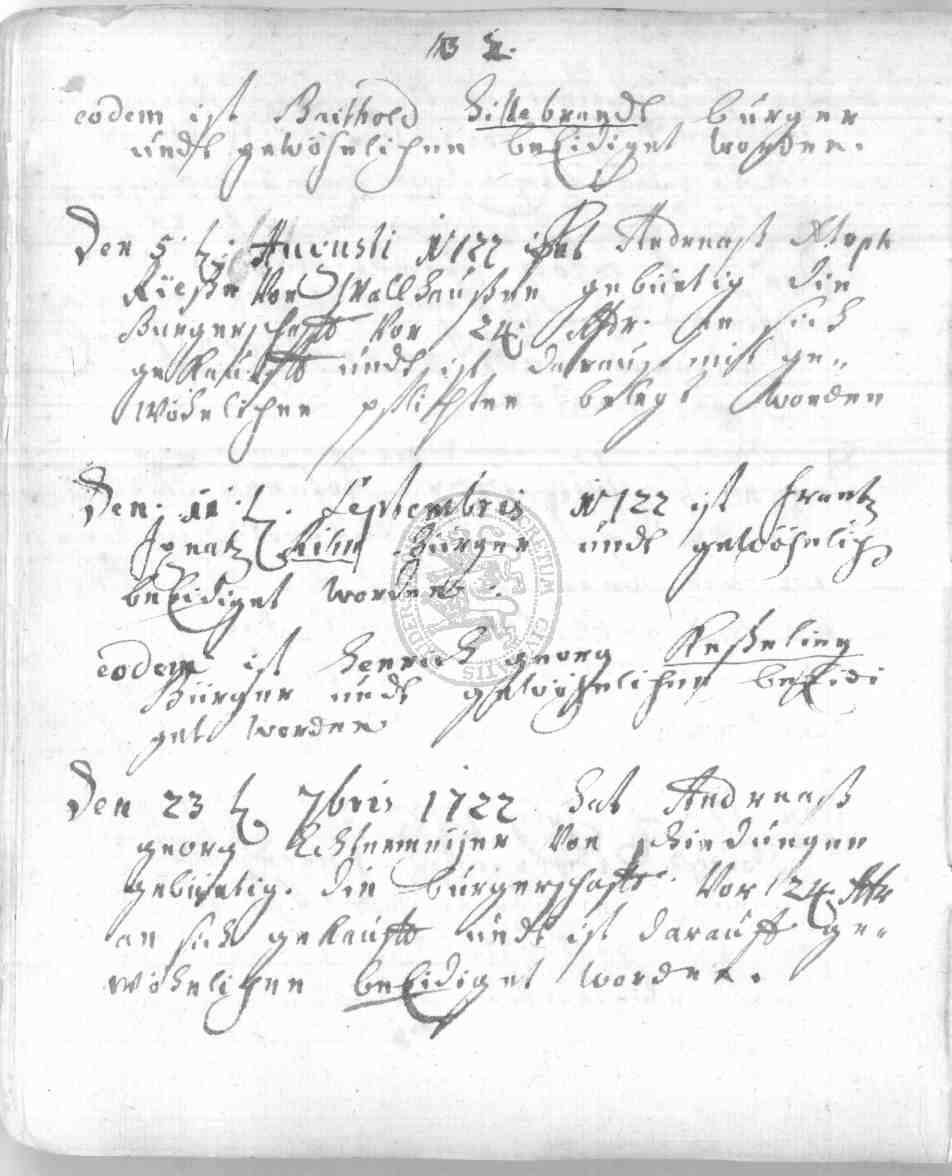 eodem ist Barthold Hillebrandt bürger
undt gewöhnlichen beEidiget worden.
Den 5. t. Augusti 1722 hat Andreaß
Von Wallhaußen gebürtig die
Bürgerschafft Vor 24. rthr. an sich
gekaufft undt ist darauf mit ge-
wöhnlichen pflichten belegt worden
Den 11. t. Septembris 1722 ist Frantz
Ignatz Bürger undt gewöhnlich
beEidiget worden.
eodem ist Henrich georg Keßeling
Bürger undt gewöhnlichen beEidi
get worden
Den 23 t. 7bris 1722 hat Andreaß
georg Achtermeijer Von schiedungen
gebürtig. die bürgerschafft Vor 24. rthr
an sich gekaufft undt ist darauff ge-
wöhnlichen beEidiget worden.